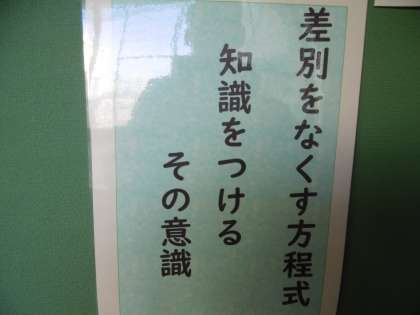 差別をなくす方程式
知識をつける
その意識